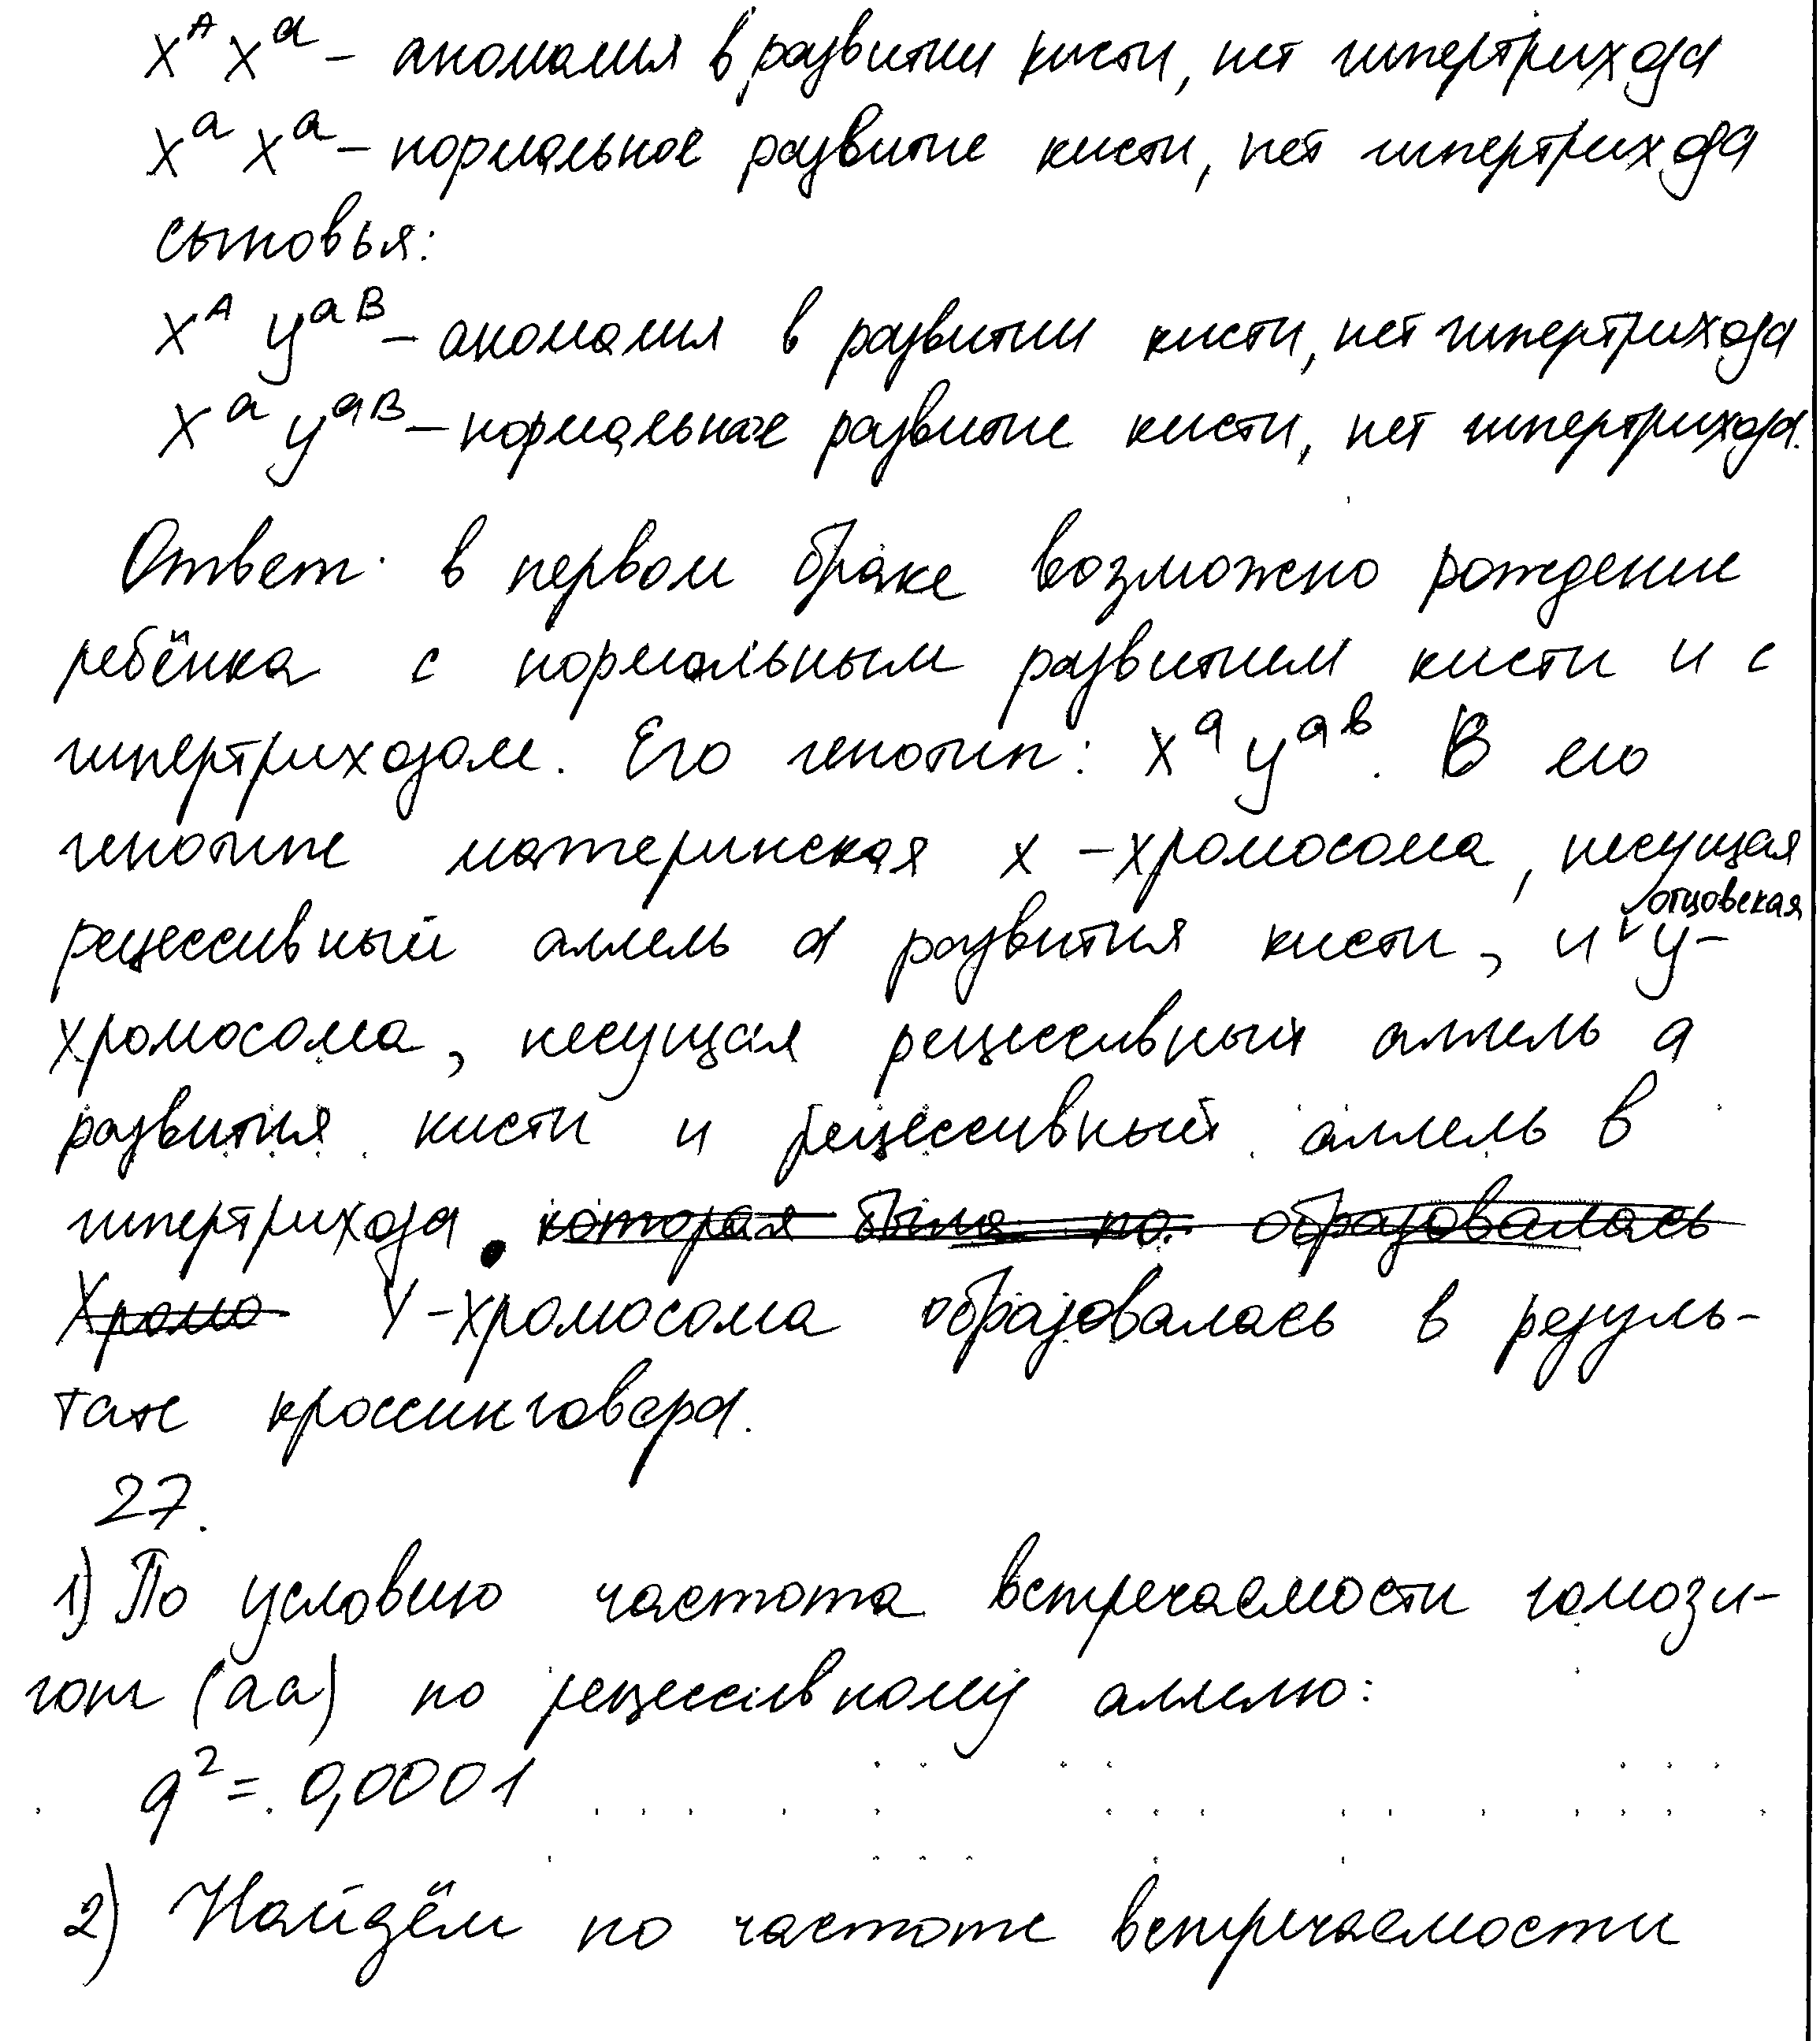 X^A X^a – аномалия в развитии кисти, нет гипертрихоза
X^a X^a – нормальное развитие кисти, нет гипертрихоза
сыновья:
X^A Y^aB – аномалия в развитии кисти, нет гипертрихоза
X^a Y^aB – нормальное развитие кисти, нет гипертрихоза.
Ответ: в первом браке возможно рождение
ребёнка с нормальным развитием кисти и с
гипертрихозом. Его генотип: X^a Y^ab. В его
генотипе материнская x-хромосома, несущая
рецессивный аллель a развития кисти, и отцовская y-
хромосома, несущая рецессивный аллель a
развития кисти и рецессивный аллель b
гипертрихоза. которая была по образовалась
Хромо Y-хромосома образовалась в резуль-
тате кроссинговера.
27.
1) По условию частота встречаемости гомози-
гот (aa) по рецессивному аллелю:
q² = 0,0001
2) Найдём по частоте встречаемости